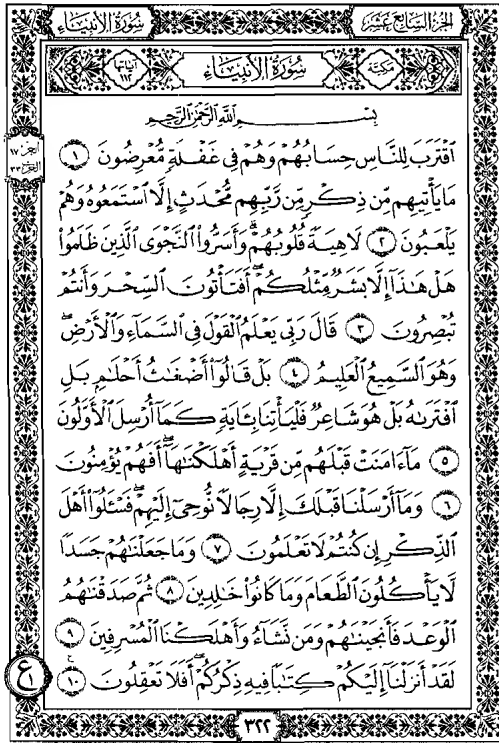 الجزء السابع عشر سورة الأنبياء
مكية سورة الأنبياء آياتها ١١٢
بِسْمِ اللَّهِ الرَّحْمَٰنِ الرَّحِيمِ
ٱقْتَرَبَ لِلنَّاسِ حِسَابُهُمْ وَهُمْ فِى غَفْلَةٍ مُّعْرِضُونَ ١
مَا يَأْتِيهِم مِّن ذِكْرٍ مِّن رَّبِّهِم مُّحْدَثٍ إِلَّا ٱسْتَمَعُوهُ وَهُمْ
يَلْعَبُونَ ٢ لَاهِيَةً قُلُوبُهُمْ ۗ وَأَسَرُّوا۟ ٱلنَّجْوَى ٱلَّذِينَ ظَلَمُوا۟
هَلْ هَٰذَآ إِلَّا بَشَرٌ مِّثْلُكُمْ ۖ أَفَتَأْتُونَ ٱلسِّحْرَ وَأَنتُمْ
تُبْصِرُونَ ٣ قَالَ رَبِّى يَعْلَمُ ٱلْقَوْلَ فِى ٱلسَّمَآءِ وَٱلْأَرْضِ ۖ
وَهُوَ ٱلسَّمِيعُ ٱلْعَلِيمُ ٤ بَلْ قَالُوٓا۟ أَضْغَٰثُ أَحْلَٰمٍۭ بَلِ
ٱفْتَرَىٰهُ بَلْ هُوَ شَاعِرٌ فَلْيَأْتِنَا بِـَٔايَةٍ كَمَآ أُرْسِلَ ٱلْأَوَّلُونَ
٥ مَآ ءَامَنَتْ قَبْلَهُم مِّن قَرْيَةٍ أَهْلَكْنَٰهَآ ۖ أَفَهُمْ يُؤْمِنُونَ
٦ وَمَآ أَرْسَلْنَا قَبْلَكَ إِلَّا رِجَالًا نُّوحِىٓ إِلَيْهِمْ ۖ فَسْـَٔلُوٓا۟ أَهْلَ
ٱلذِّكْرِ إِن كُنتُمْ لَا تَعْلَمُونَ ٧ وَمَا جَعَلْنَٰهُمْ جَسَدًا
لَّا يَأْكُلُونَ ٱلطَّعَامَ وَمَا كَانُوا۟ خَٰلِدِينَ ٨ ثُمَّ صَدَقْنَٰهُمُ
ٱلْوَعْدَ فَأَنجَيْنَٰهُمْ وَمَن نَّشَآءُ وَأَهْلَكْنَا ٱلْمُسْرِفِينَ ٩
لَقَدْ أَنزَلْنَآ إِلَيْكُمْ كِتَٰبًا فِيهِ ذِكْرُكُمْ ۖ أَفَلَا تَعْقِلُونَ ١٠
ع ١
٣٢٢